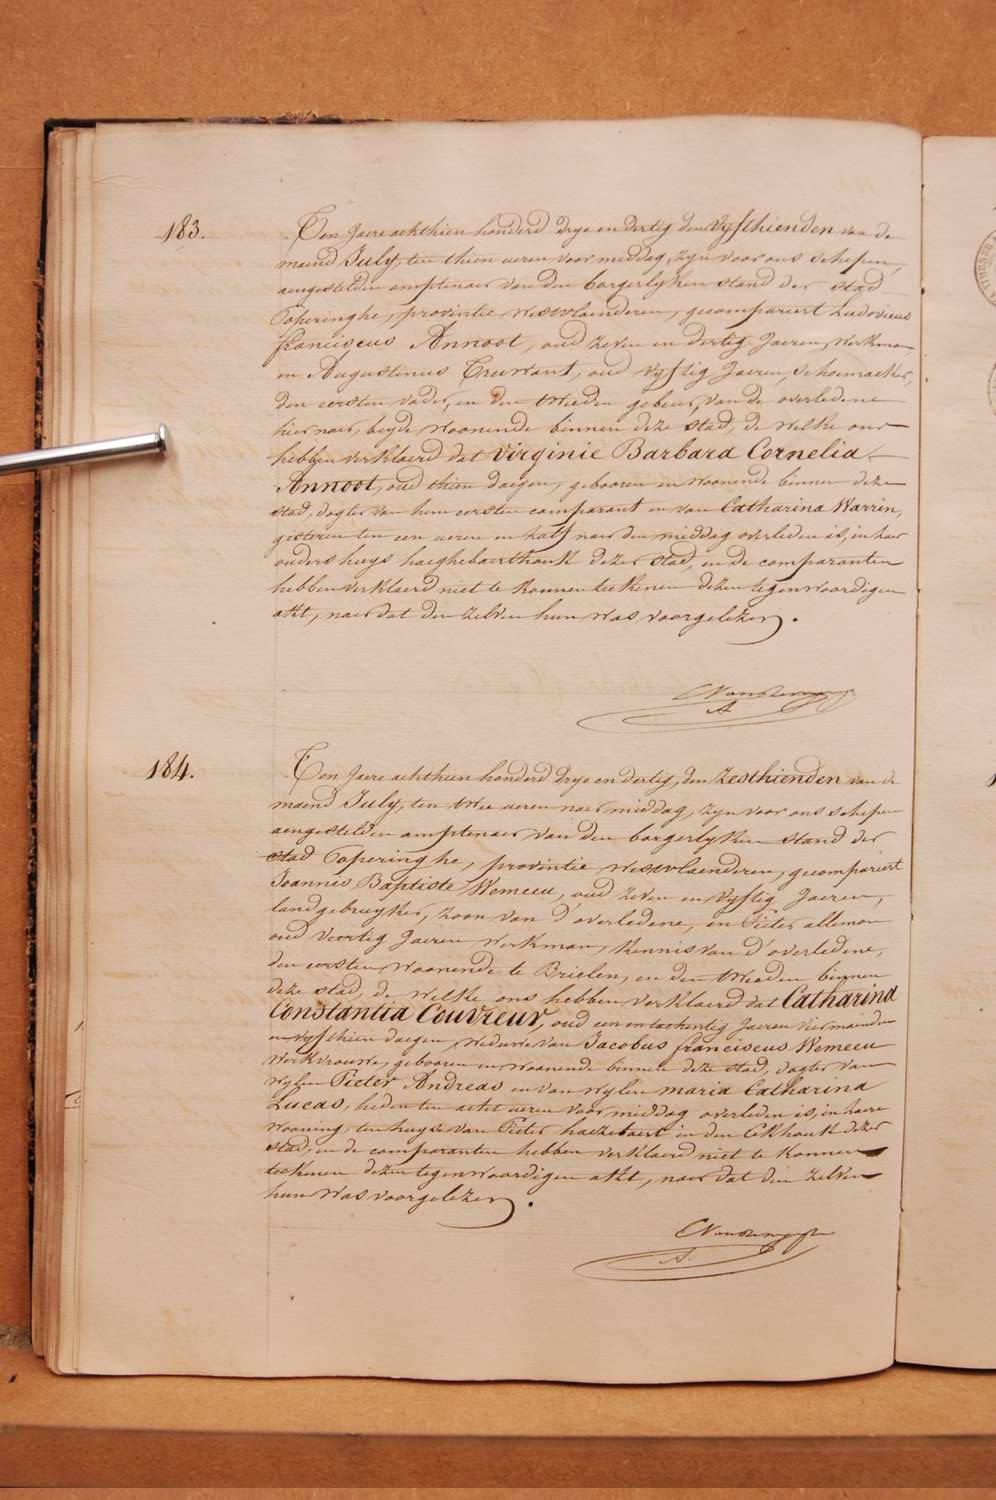 183.
Ten Jaere achthien honderd drye en dertig den Vyfthienden van de
maend July, ten thien ueren voor middag, zyn voor ons schepen,
aengestelden amptenaer van den borgerlyken stand der stad
Poperinghe, provintie Westvlaenderen, gecompareert Ludovicus
franciscus Annoot, oud zeven en dertig Jaeren, werkman,
en Augustinus Truwant, oud vyftig Jaeren, schoenmaeker,
den eersten vader, en den tweeden gebeur, van de overledene
hier naer, beyde woonende binnen deze stad, de welke ons
hebben verklaerd dat Virginie Barbara Cornelia
Annoot, oud thien daegen, gebooren en woonende binnen deze
stad, dogter van hem eersten comparant en van Catharina Warrin,
gisteren ten een ueren en half naer den middag overleden is, in haer
ouders huys haeghebaerthouk dezer stad, en de comparanten
hebben verklaerd niet te konnen teekenen dezen tegenwoordigen
akt, naer dat den zelven hun was voorgelezen.
184.
Ten Jaere achthien honderd drye en dertig, den Zesthienden van de
maend July, ten twee ueren naer middag, zyn voor ons schepen
aengestelden amptenaer van den borgerlyken stand der
stad Poperinghe, provintie Westvlaenderen, gecompareert
Joannes Baptiste Wemeeu, oud zeven en vyftig Jaeren,
landgebruyker, zoon van d'overledene, en Pieter alleman
oud Veertig Jaeren werkman, kennis van d'overledene,
den eersten woonende te Brielen, en den tweeden binnen
deze stad, de welke ons hebben verklaerd dat Catharina
Constantia Couvreur, oud een en tachentig Jaeren vier mainden
en vyfthien daegen, weduwe van Jacobus franciscus Wemeeu
werkvrouwe, gebooren en woonende binnen deze stad, dogter van
wylen Pieter Andreas en van wylen maria Catharina
Lucas, heden ten acht ueren voor middag overleden is, in haere
wooning, ten huyse van Pieter haezebaert in den Ekhouk dezer
stad, en de comparanten hebben verklaerd niet te konnen
teekenen dezen tegenwoordigen akt, naer dat den zelven
hun was voorgelezen.